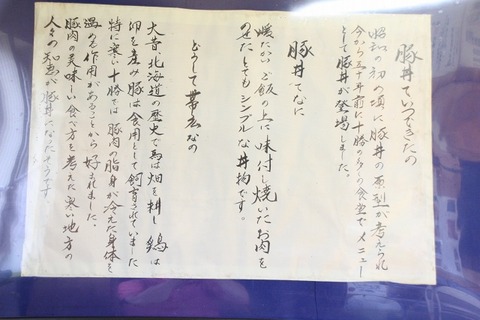 豚丼ていつできたの
昭和の初の頃に豚丼の原型が考えられ
今から五十年前に十勝の多くの食堂でメニュー
として豚丼が登場しました。
豚丼てなに
暖たかいご飯の上に味付し焼いたお肉を
のせたとてもシンプルな丼物です。
どうして帯広なの
大昔、北海道の歴史で馬は畑を耕し、鶏は
卵を産み豚は食用として飼育されていました
特に寒い十勝では豚肉の脂身が冷えた身体を
温める作用があることから好まれました。
豚肉の美味しい食べ方を考えた寒い地方の
人々の知恵が豚丼になたそうです